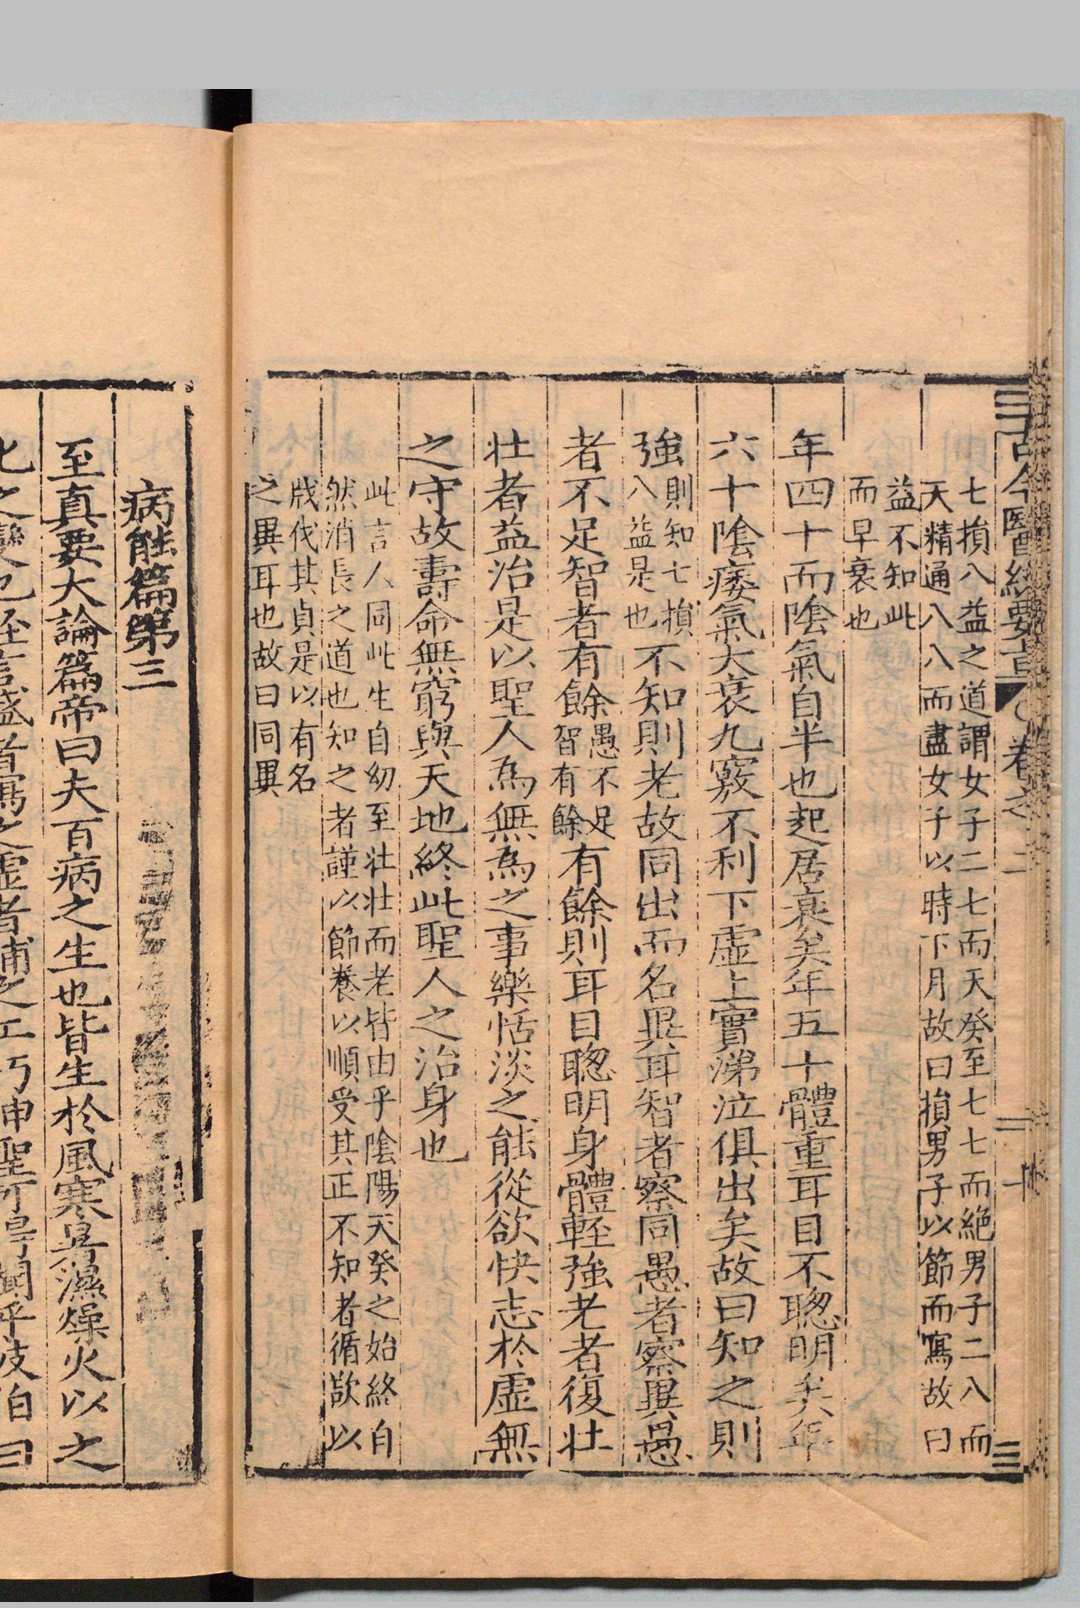 古今醫經要旨 卷之二 十
七損八益之道謂女子二七而天癸至七七而絶男子二八而
天精通八八而盡女子以時下月故曰損男子以節而寫故曰
益不知此
而早衰也
年四十而陰氣自半也起居衰矣年五十體重耳目不聦明矣年
六十陰痿氣大衰九竅不利下虚上實涕泣俱出矣故曰知之則
強
則知七損
八益是也
不知則老故同出而名異耳智者察同愚者察異愚
者不足智者有餘
愚不足
智有餘
有餘則耳目聦明身體輕強老者復壮
壮者益治是以聖人為無為之事樂恬淡之能從欲快志於虚無
之守故壽命無窮與天地終此聖人之治身也
此言人同此生自幼至壮壮而老皆由乎陰陽天癸之始終自
然消長之道也知之者謹以節養以順受其正不知者循欲以
戕伐其貞是以有名
之異耳也故曰同異
病能篇第三
至真要大論篇帝曰夫百病之生也皆生於風寒暑濕燥火以之
化之變也經言盛者寫之虚者補之工巧神聖可得聞乎岐伯曰